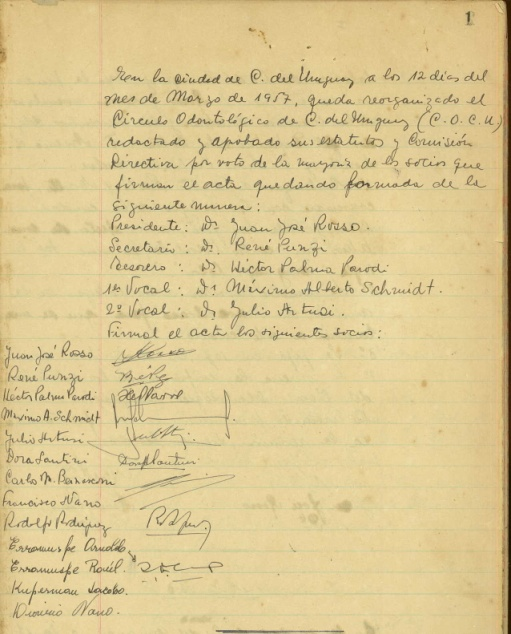 1
En la ciudad de C. del Uruguay a los 12 dias del
mes de Marzo de 1957, queda reorganizado el
Circulo Odontológico de C. del Uruguay (C.O.C.U)
redactado y aprobado sus estatutos y Comisión
Directiva por voto de la mayoria de los socios que
firman el acta quedando formada de la
siguiente manera:
Presidente: Dr Juan José Rosso.
Secretario: Dr. René Punzi
Tesorero: Dr Héctor Palma Parodi
1er Vocal: Dr Máximo Alberto Schmidt.
2º Vocal: Dr Julio Artusi.
Firman el acta los siguientes socios:
Juan José Rosso
René Punzi
Héctor Palma Parodi
Maximo A. Schmidt
Julio Artusi
Dora Santini
Carlos M.
Francisco Nano
Rodolfo Rodriguez
Erramuspe Arnoldo
Erramuspe Raúl.
Kuperman Jacobo.
Dionisio Nano.